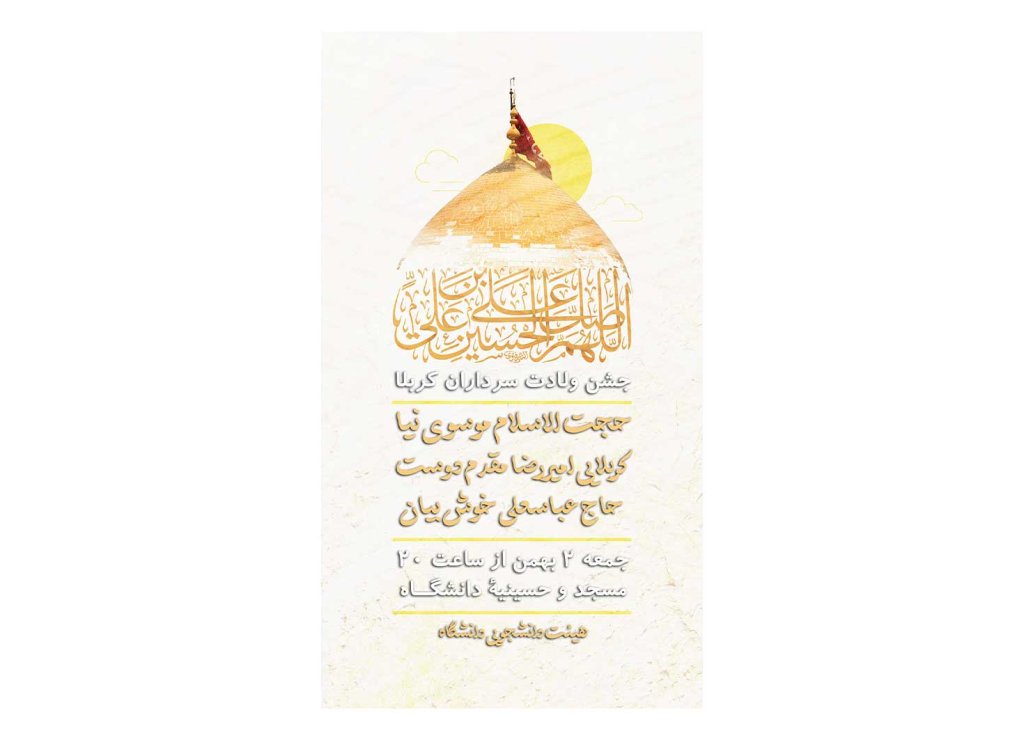 اللّهُمَّ صَلِّ عَلَی الحُسَینِ بنِ عَلَیٍّ
جشن ولادت سرداران کربلا
حجت الاسلام موسوی نیا
کربلایی امیررضا مقدم دوست
حاج عباسعلی خوش بیان
جمعه ۲ بهمن از ساعت ۲۰
مسجد و حسینیهٔ دانشگاه
هیئت دانشجویی دانشگاه